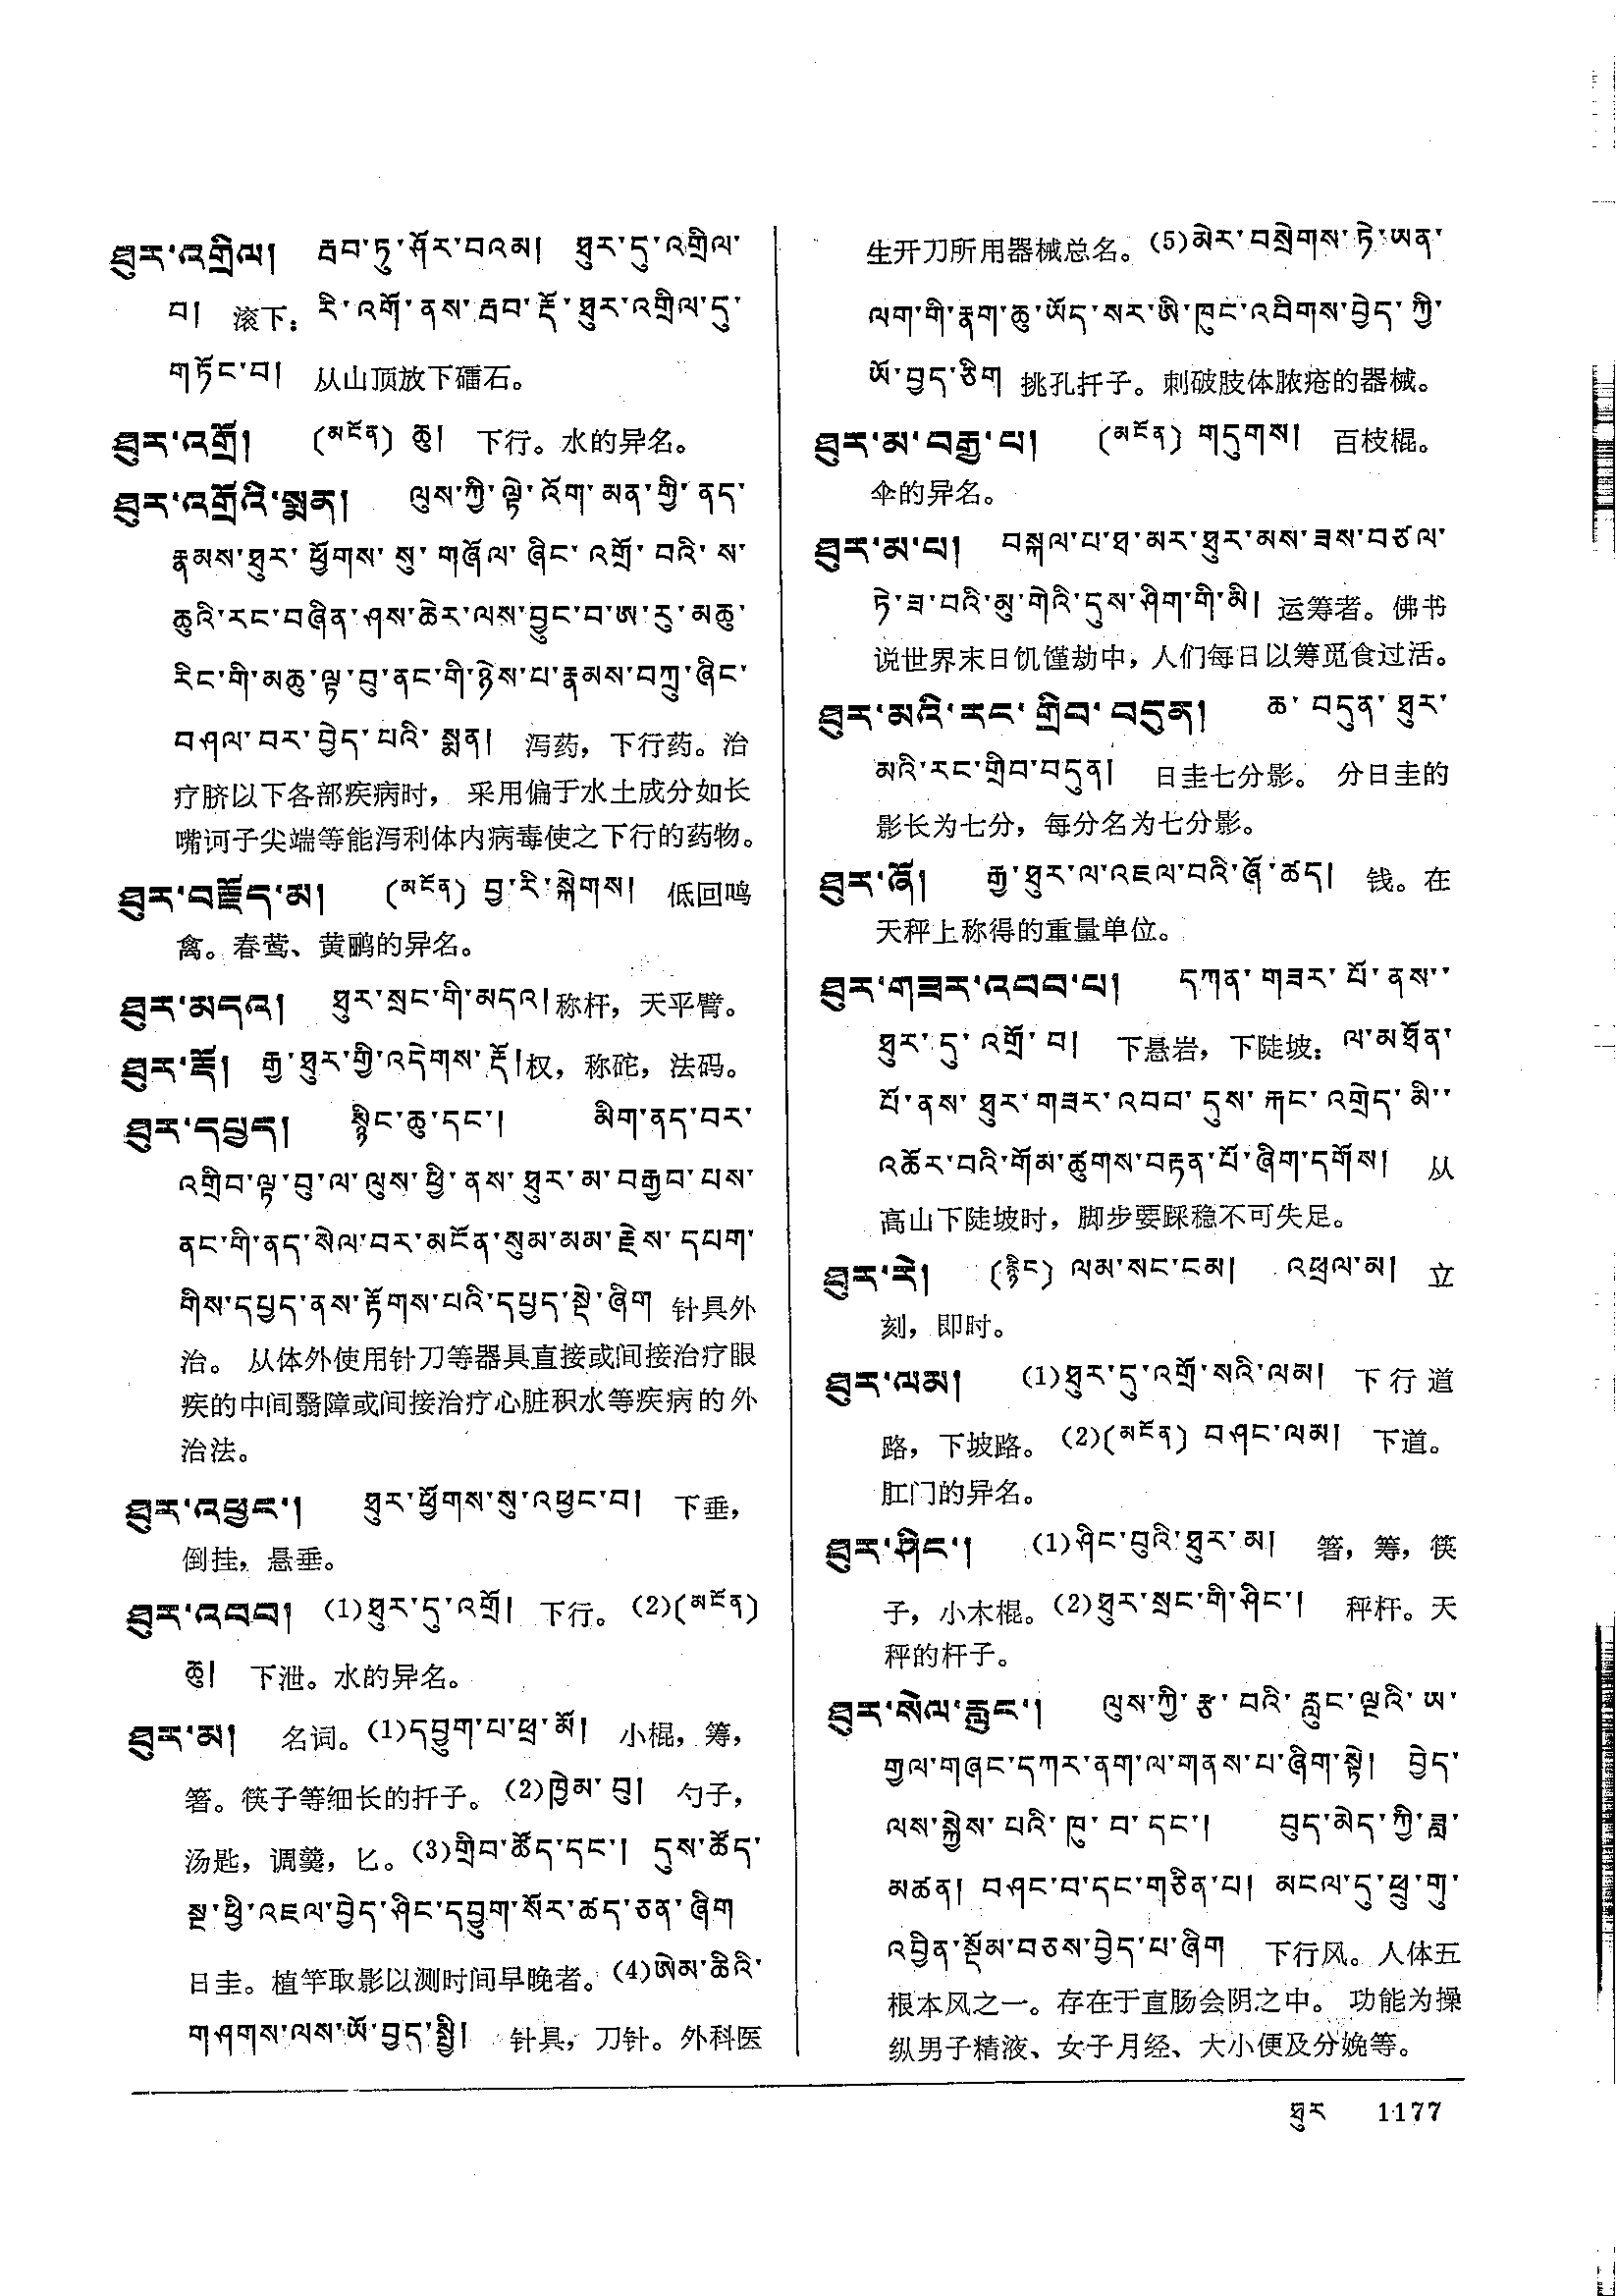 ཐུར་འགྲིལ། རྦབ་ཏུ་ཤོར་བའམ། ཐུར་དུ་འགྲིལ་
བ། 滚下: རི་འགོ་ནས་རྦབ་རྡོ་ཐུར་འགྲིལ་དུ་
གཏོང་བ། 从山顶放下礌石。
ཐུར་འགྲོ། (མངོན) ཆུ། 下行。水的异名。
ཐུར་འགྲོའི་སྨན། ལུས་ཀྱི་ལྟེ་འོག་མན་གྱི་ནད་
རྣམས་ཐུར་ཕྱོགས་སུ་གཞོལ་ཞིང་འགྲོ་བའི་ས་
ཆུའི་རང་བཞིན་ཤས་ཆེར་ལས་བྱུང་བ་ཨ་རུ་མཆུ་
རིང་གི་མཆུ་ལྟ་བུ་ནང་གི་ཉེས་པ་རྣམས་བཀྲུ་ཞིང་
བཤལ་བར་བྱེད་པའི་སྨན། 泻药，下行药。治
疗脐以下各部疾病时，采用偏于水土成分如长
嘴诃子尖端等能泻利体内病毒使之下行的药物。
ཐུར་བརྗོད་མ། (མངོན) བྱ་རི་སྐེགས། 低回鸣
禽。春莺、黄鹂的异名。
ཐུར་མདའ། ཐུར་སྲང་གི་མདའ། 称杆，天平臂。
ཐུར་རྡོ། རྒྱ་ཐུར་གྱི་འདེགས་རྡོ། 权，称砣，法码。
ཐུར་དཔྱད། སྙིང་ཆུ་དང་། མིག་ནད་བར་
འགྲིབ་ལྟ་བུ་ལ་ལུས་ཕྱི་ནས་ཐུར་མ་བརྒྱབ་པས་
ནང་གི་ནད་སེལ་བར་མངོན་སུམ་མམ་རྗེས་དཔག་
གིས་དཔྱད་ནས་རྟོགས་པའི་དཔྱད་སྡེ་ཞིག 针具外
治。 从体外使用针刀等器具直接或间接治疗眼
疾的中间翳障或间接治疗心脏积水等疾病的外
治法。
ཐུར་འཕྱང་། ཐུར་ཕྱོགས་སུ་འཕྱང་བ། 下垂，
倒挂，悬垂。
ཐུར་འབབ། (1)ཐུར་དུ་འགྲོ། 下行。(2)(མངོན)
ཆུ། 下泄。水的异名。
ཐུར་མ། 名词。(1)དབྱུག་པ་ཕྲ་མོ། 小棍，筹，
箸。筷子等细长的扦子。(2)ཁྱེམ་བུ། 勺子，
汤匙，调羹，匕。(3)གྲིབ་ཚོད་དང་། དུས་ཚོད་
སྔ་ཕྱི་འཇལ་བྱེད་ཤིང་དབྱུག་སོར་ཚད་ཅན་ཞིག
日圭。植竿取影以测时间早晚者。(4)ཨེམ་ཆིའི་
གཤགས་ལས་ཡོ་བྱད་སྤྱི། 针具，刀针。外科医
生开刀所用器械总名。(5)མེར་བསྲེགས་ཏེ་ཡན་
ལག་གི་རྣག་ཆུ་ཡོད་སར་ཨི་ཁུང་འབིགས་བྱེད་ཀྱི་
ཡོ་བྱད་ཅིག 挑孔扦子。刺破肢体脓疮的器械。
ཐུར་མ་བརྒྱ་པ། (མངོན) གདུགས། 百枝棍。
伞的异名。
ཐུར་མ་པ། བསྐལ་པ་ཐ་མར་ཐུར་མས་ཟས་བཙལ་
ཏེ་ཟ་བའི་མུ་གེའི་དུས་ཤིག་གི་མི། 运筹者。佛书
说世界末日饥馑劫中，人们每日以筹觅食过活。
ཐུར་མའི་རང་གྲིབ་བདུན། ཆ་བདུན་ཐུར་
མའི་རང་གྲིབ་བདུན། 日圭七分影。 分日圭的
影长为七分，每分名为七分影。
ཐུར་ཞོ། རྒྱ་ཐུར་ལ་འཇལ་བའི་ཞོ་ཚད། 钱。在
天秤上称得的重量单位。
ཐུར་གཟར་འབབ་པ། དཀན་གཟར་པོ་ནས་་
ཐུར་དུ་འགྲོ་བ། 下悬岩，下陡坡: ལ་མཐོན་
པོ་ནས་ཐུར་གཟར་འབབ་དུས་རྐང་འགྲེད་མི་་
འཆོར་བའི་གོམ་ཚུགས་བརྟན་པོ་ཞིག་དགོས། 从
高山下陡坡时，脚步要踩稳不可失足。
ཐུར་རེ། (རྙིང) ལམ་སང་ངམ། འཕྲལ་མ། 立
刻，即时。
ཐུར་ལམ། (1)ཐུར་དུ་འགྲོ་སའི་ལམ། 下行道
路，下坡路。(2)(མངོན) བཤང་ལམ། 下道。
肛门的异名。
ཐུར་ཤིང་། (1)ཤིང་བུའི་ཐུར་མ། 箸，筹，筷
子，小木棍。(2)ཐུར་སྲང་གི་ཤིང་། 秤杆。天
秤的杆子。
ཐུར་སེལ་རླུང་། ལུས་ཀྱི་རྩ་བའི་རླུང་ལྔའི་ཡ་
གྱལ་གཞང་དཀར་ནག་ལ་གནས་པ་ཞིག་སྟེ། བྱེད་
ལས་སྐྱེས་པའི་ཁུ་བ་དང་། བུད་མེད་ཀྱི་ཟླ་
མཚན། བཤང་བ་དང་གཅིན་པ། མངལ་དུ་ཕྲུ་གུ་
འབྱིན་སྡོམ་བཅས་བྱེད་པ་ཞིག 下行风。人体五
根本风之一。存在于直肠会阴之中。 功能为操
纵男子精液、女子月经、大小便及分娩等。
ཐུར 1177